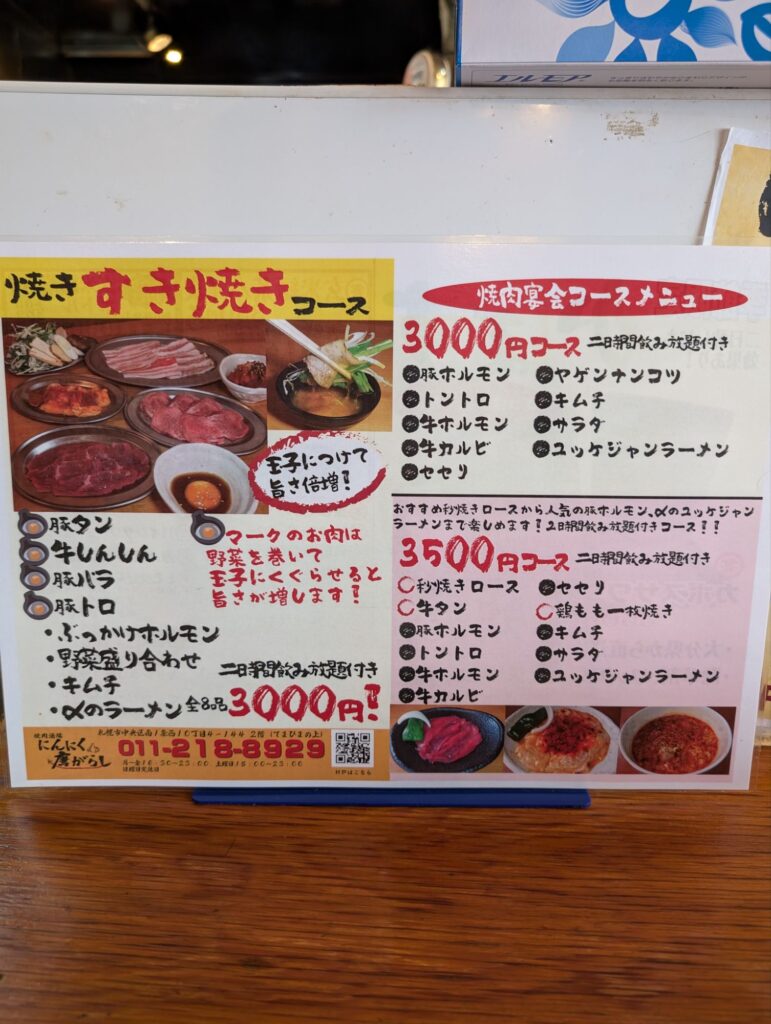 エルモア
焼き すき焼き コース
玉子につけて
旨さ倍増!
豚タン
牛しんしん
豚バラ
豚トロ
マークのお肉は
野菜を巻いて
玉子にくぐらせると
旨さが増します!
・ぶっかけホルモン
・野菜盛り合わせ
・キムチ
・〆のラーメン 全8品
二日時間飲み放題付き
3000円!
焼肉酒場
にんにく
唐がらし
011-218-8929
日曜日定休日
HPはこちら
焼肉宴会コースメニュー
3000円コース 二日時間飲み放題付き
●豚ホルモン ●ヤゲンナンコツ
●トントロ ●キムチ
●牛ホルモン ●サラダ
●牛カルビ ●ユッケジャンラーメン
●セセリ
おすすめ秒焼きロースから人気の豚ホルモン、〆のユッケジャン
ラーメンまで楽しめます!2日時間飲み放題付きコース!!
3500円コース 二日時間飲み放題付き
○秒焼きロース ●セセリ
○牛タン ○鶏もも一枚焼き
●豚ホルモン ●キムチ
●トントロ ●サラダ
●牛ホルモン ●ユッケジャンラーメン
●牛カルビ